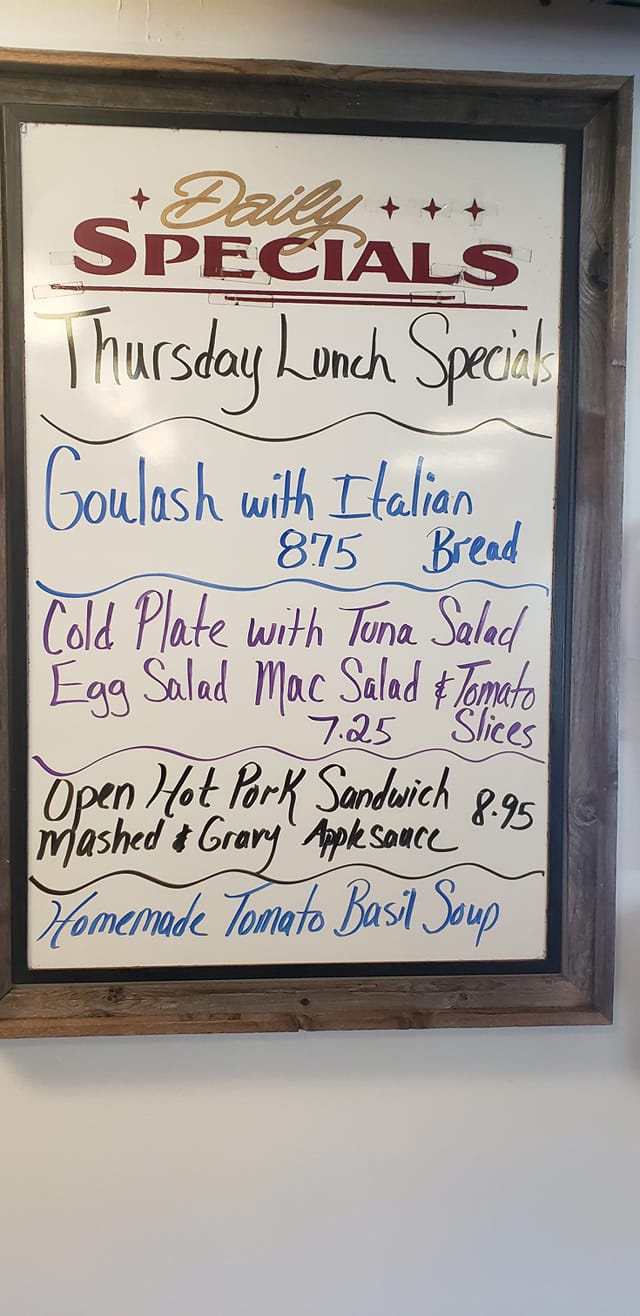 Daily
SPECIALS
Thursday Lunch Specials
Goulash with Italian
8.75 Bread
Cold Plate with Tuna Salad
Egg Salad Mac Salad & Tomato
7.25 Slices
Open Hot Pork Sandwich 8.95
Mashed & Gravy Applesauce
Homemade Tomato Basil Soup